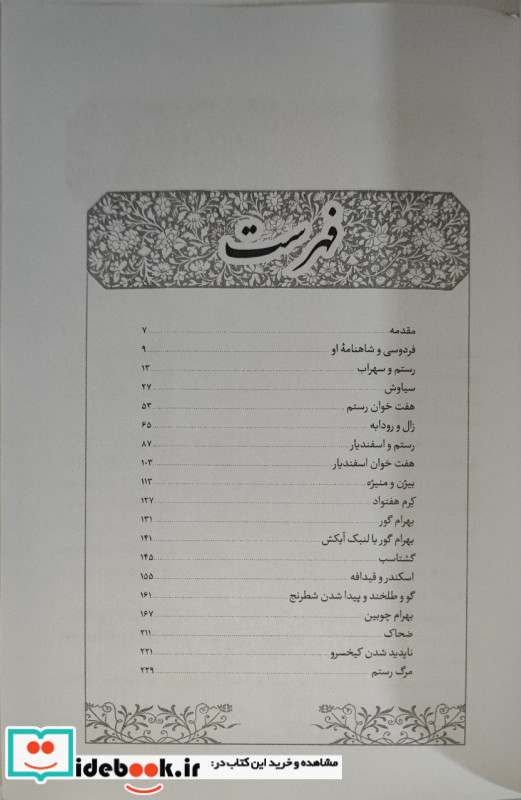 فهرست
مقدمه ۷
فردوسی و شاهنامهٔ او ۹
رستم و سهراب ۱۳
سیاوش ۲۷
هفت خوان رستم ۵۳
زال و رودابه ۶۵
رستم و اسفندیار ۸۷
هفت خوان اسفندیار ۱۰۳
بیژن و منیژه ۱۱۳
کِرم هفتواد ۱۲۷
بهرام گور ۱۳۱
بهرام گور با لنبک آبکش ۱۴۱
گشتاسب ۱۴۵
اسکندر و قیدافه ۱۵۵
گو و طلخند و پیدا شدن شطرنج ۱۶۱
بهرام چوبین ۱۶۷
ضحاک ۲۱۱
ناپدید شدن کیخسرو ۲۲۱
مرگ رستم ۲۲۹
مشاهده و خرید این کتاب در:
idebook.ir